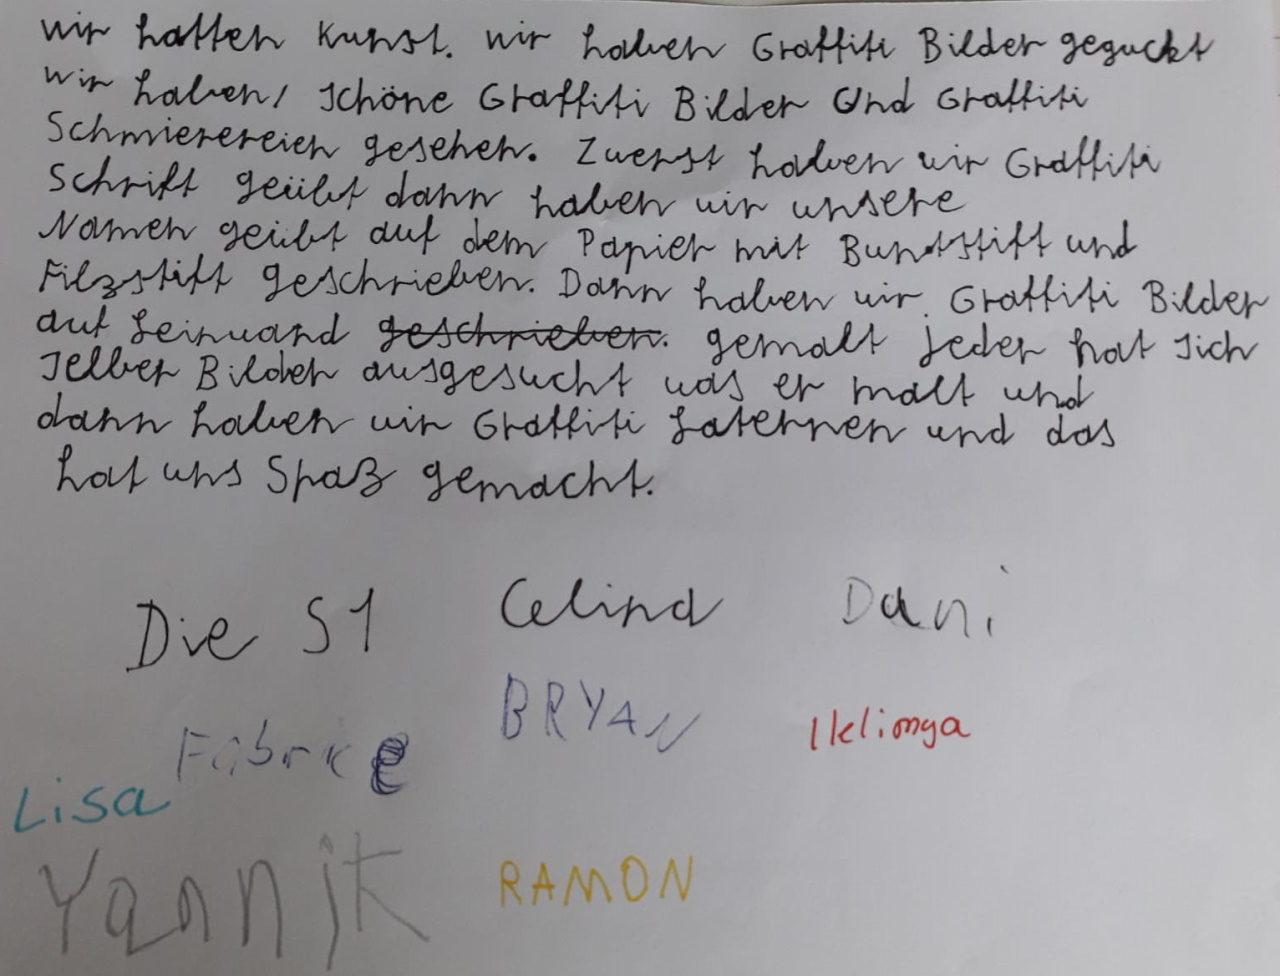 wir hatten Kunst. wir haben Graffiti Bilder geguckt
wir haben, schöne Graffiti Bilder Und Graffiti
Schmierereien gesehen. Zuerst haben wir Graffiti
Schrift geübt dann haben wir unsere
Namen geübt auf dem Papier mit Buntstift und
Filzstift geschrieben. Dann haben wir Graffiti Bilder
auf Leinwand geschrieben. gemalt jeder hat sich
selber Bilder ausgesucht was er malt und
dann haben wir Graffiti Laternen und das
hat uns Spaß gemacht.
Die S1 Celina Dani
BRYAN
Lisa
Yannik RAMON